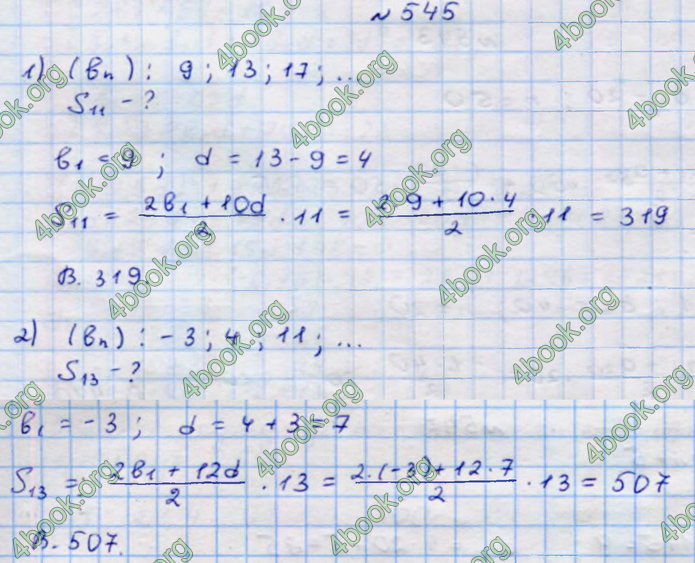 № 545
1) (bₙ): 9; 13; 17; ...
S₁₁ - ?
b₁ = 9; d = 13 - 9 = 4
S₁₁ = (2b₁ + 10d)/2 · 11 = (2·9 + 10·4)/2 · 11 = 319
В. 319.
2) (bₙ): -3; 4; 11; ...
S₁₃ - ?
b₁ = -3; d = 4 + 3 = 7
S₁₃ = (2b₁ + 12d)/2 · 13 = (2·(-3) + 12·7)/2 · 13 = 507
В. 507.
4book.org